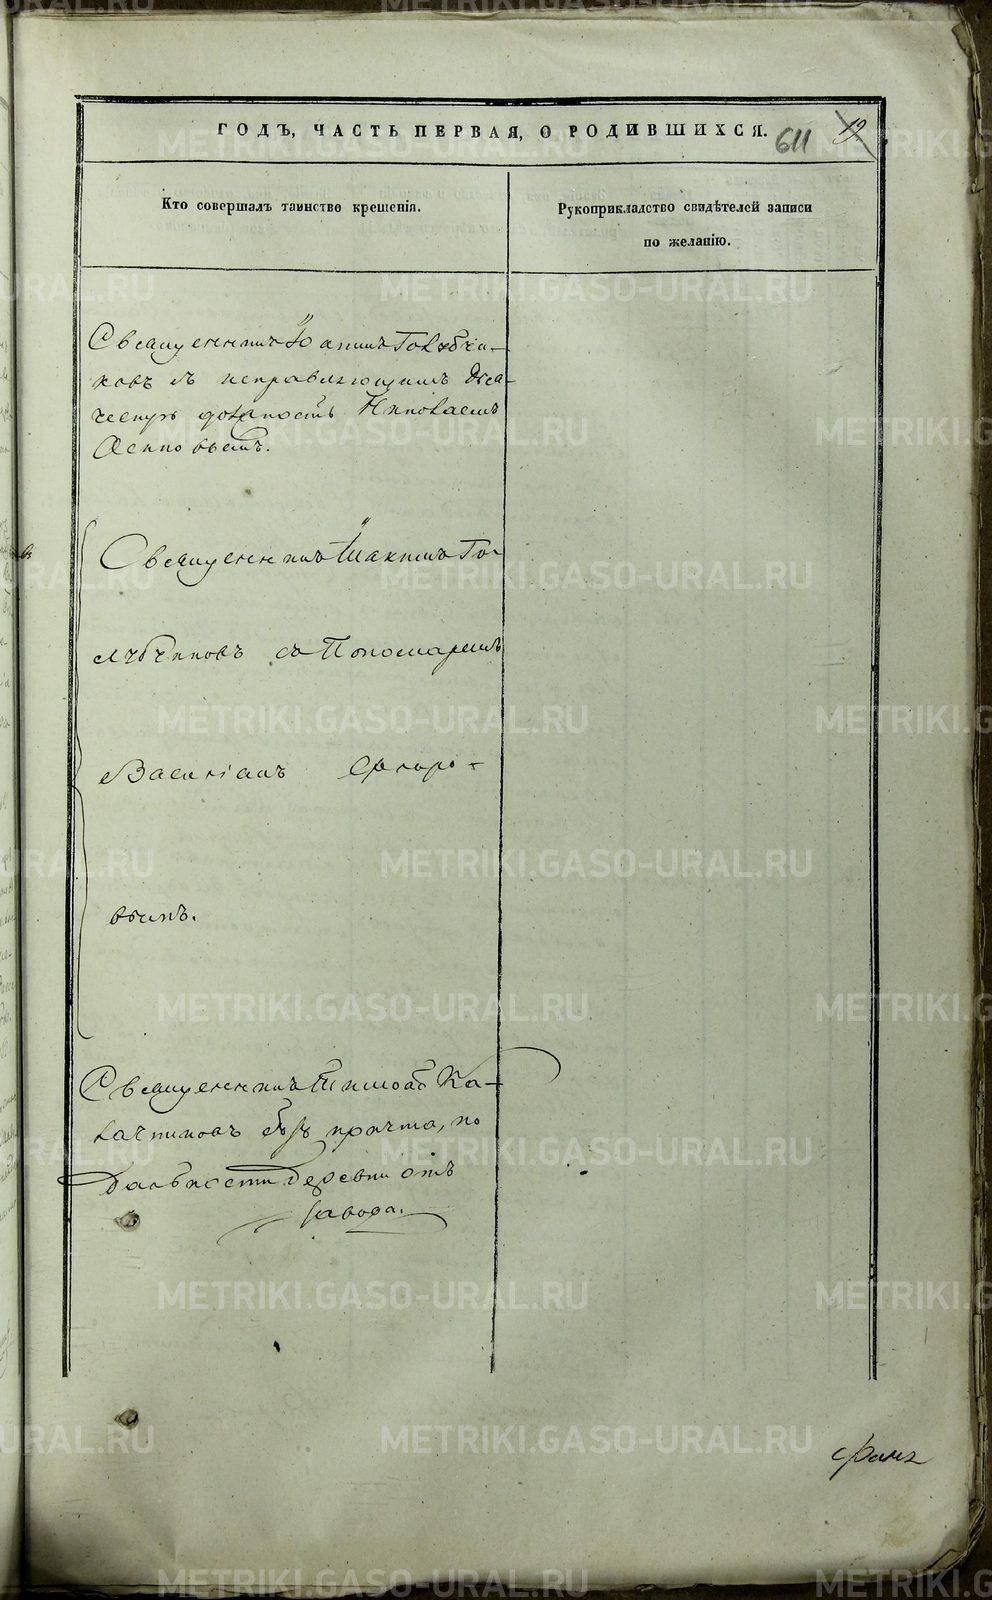 ГОДЪ, ЧАСТЬ ПЕРВАЯ, О РОДИВШИХСЯ.
611
19
Кто совершалъ таинство крещенія.
Рукоприкладство свидѣтелей записи
по желанію.
Священникъ Іоакимъ Голубчи-
ковъ съ исправляющимъ Дья-
ческую должность Николаемъ
Осиповымъ.
Священникъ Іоакимъ Го-
лубчиковъ съ Пономаремъ
Василіемъ Флоро-
вымъ.
Священникъ Тимоѳей Ка-
лачниковъ безъ причта, по
дальности деревни отъ
завода.
METRIKI.GASO-URAL.RU